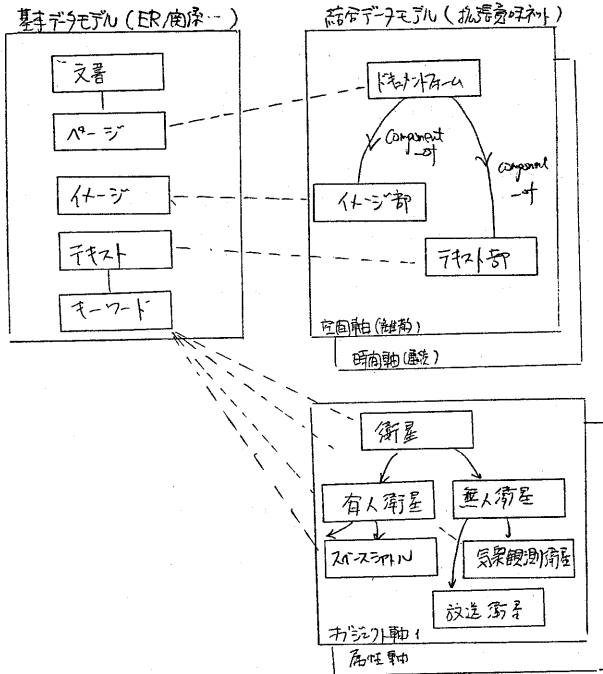 基本データモデル（ER/関係…）
文書
ページ
イメージ
テキスト
キーワード
結合データモデル（拡張意味ネット）
ドキュメントフォーム
component
_of
component
_of
イメージ部
テキスト部
空間軸(離散)
時間軸(連続)
衛星
有人衛星
無人衛星
スペースシャトル
気象観測衛星
放送衛星
オブジェクト軸1
属性軸